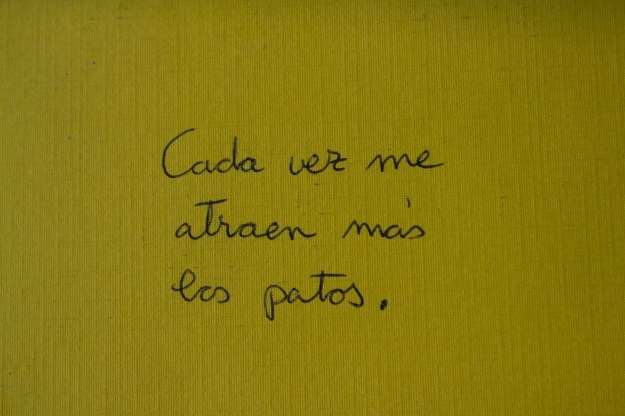 Cada vez me
atraen más
los patos.